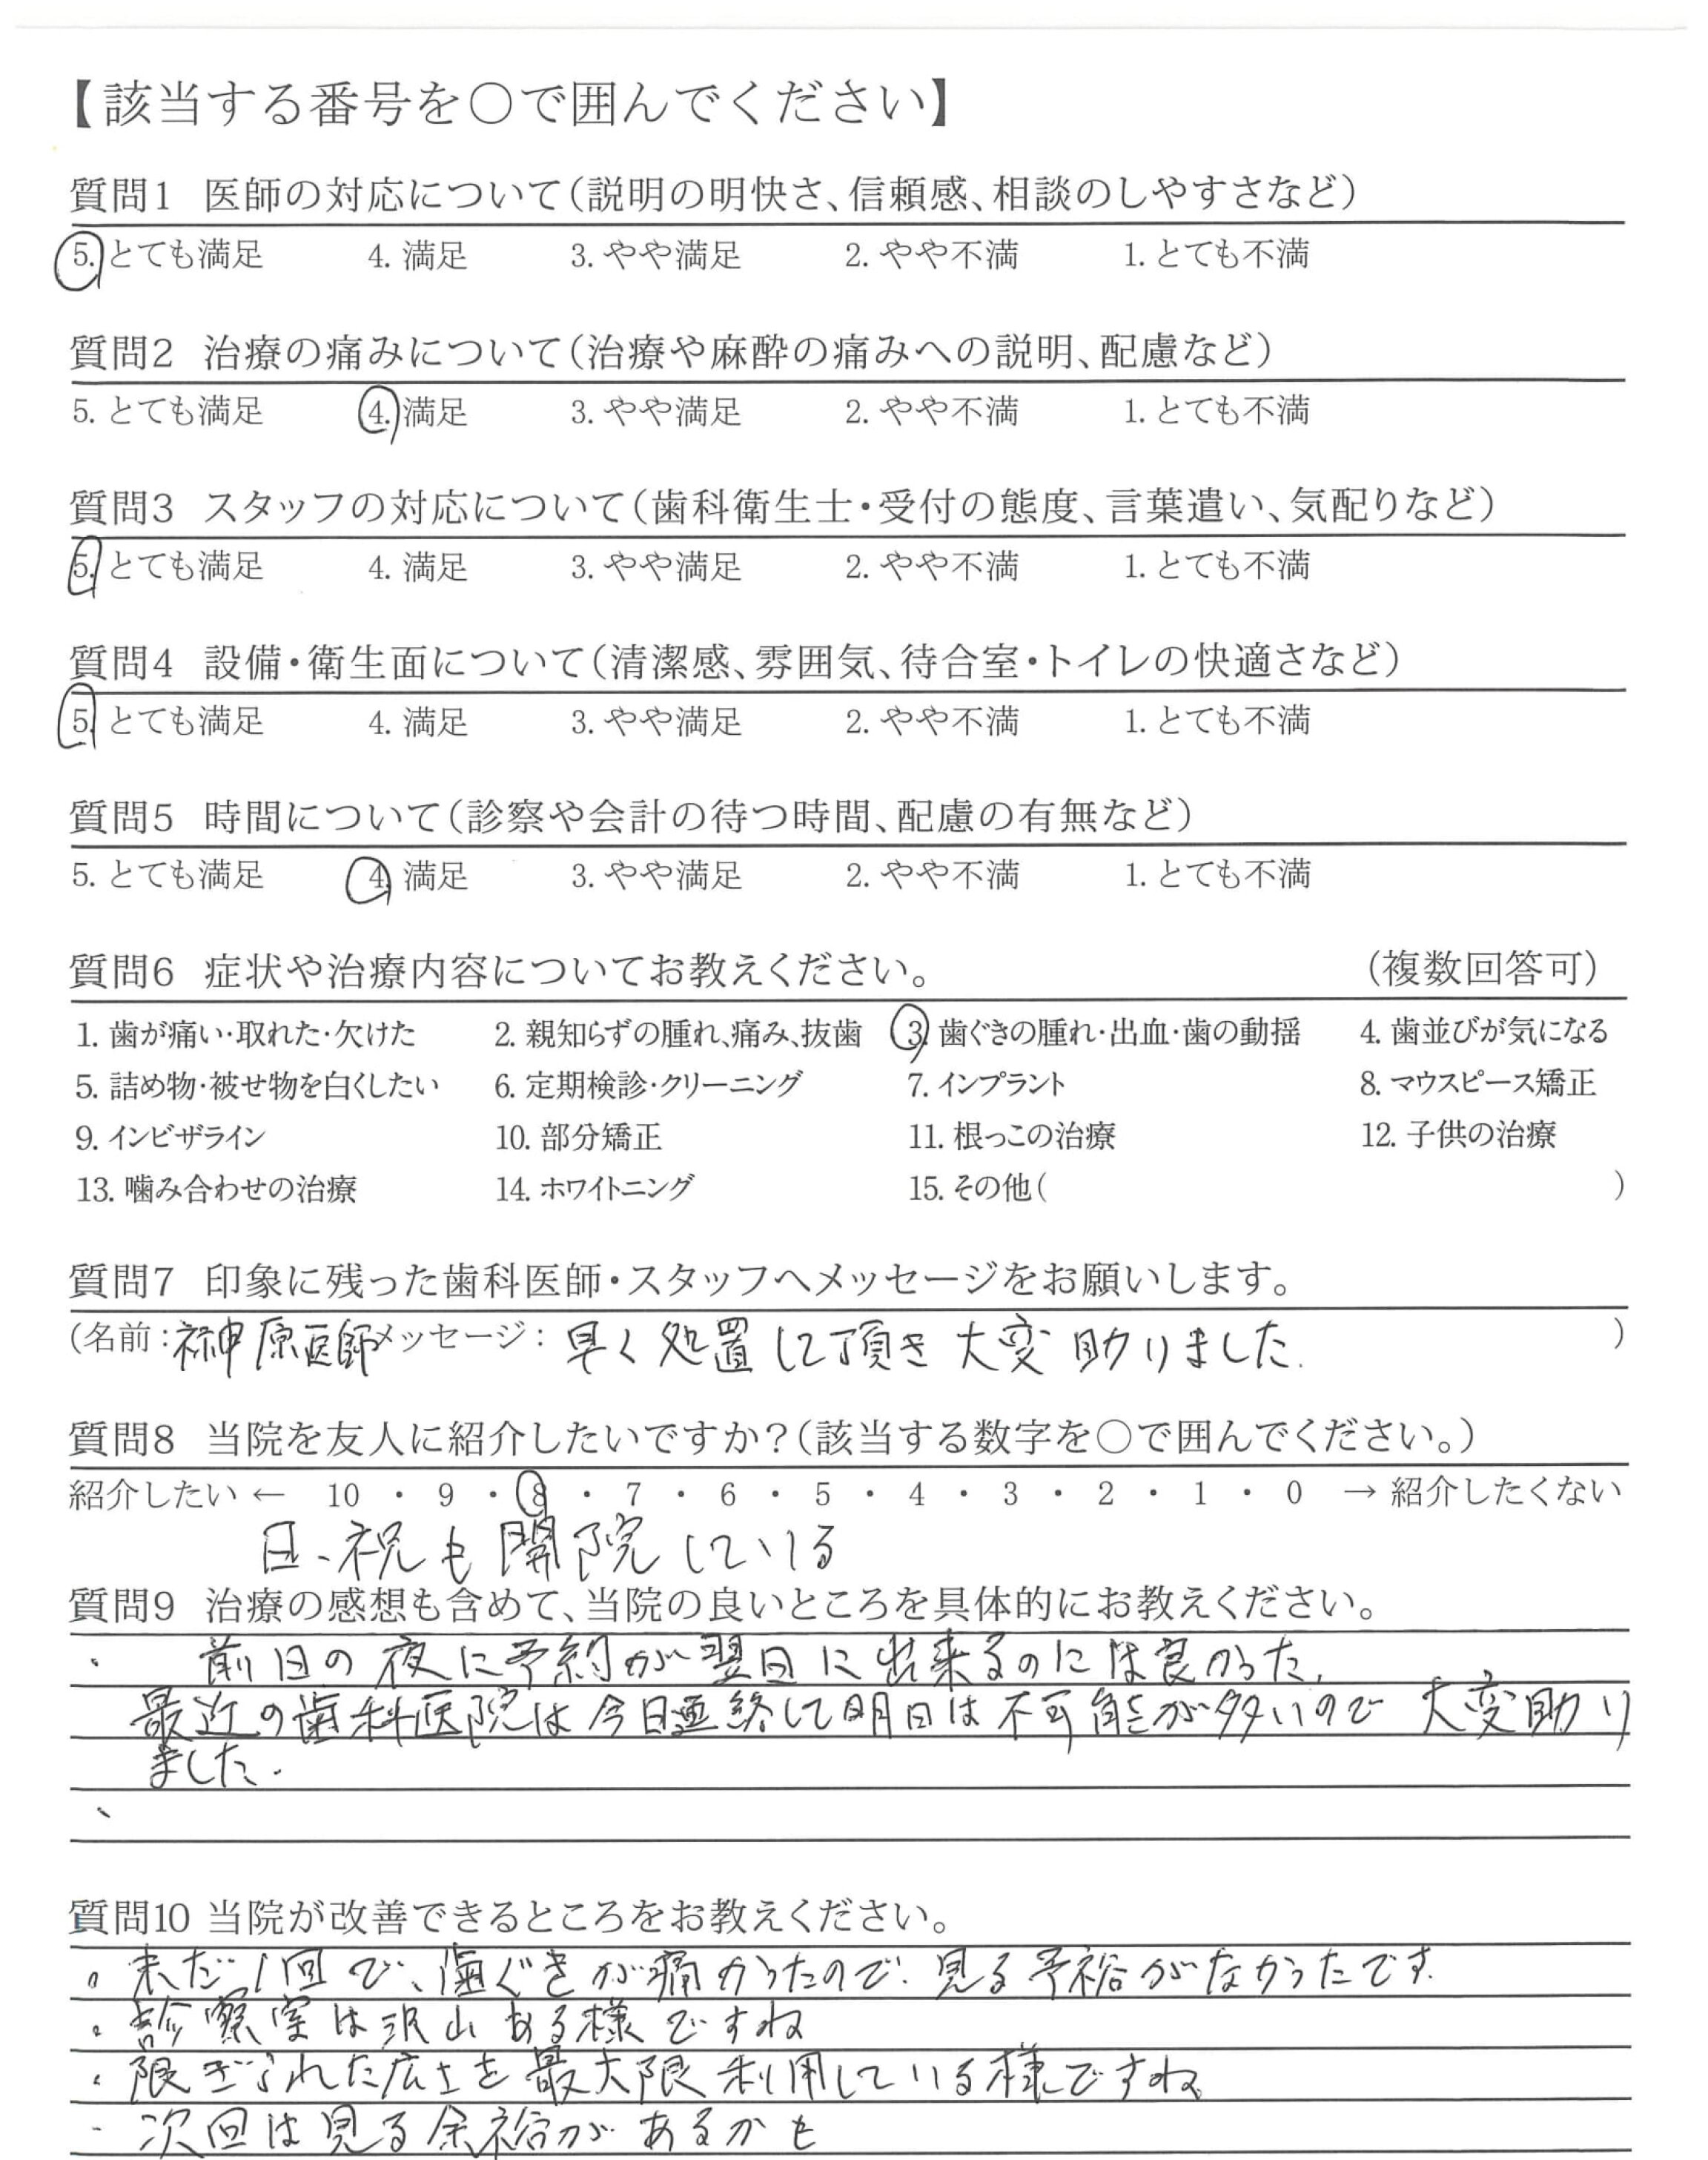 【該当する番号を〇で囲んでください】
質問1 医師の対応について(説明の明快さ、信頼感、相談のしやすさなど)
5. とても満足 4. 満足 3. やや満足 2. やや不満 1. とても不満
質問2 治療の痛みについて(治療や麻酔の痛みへの説明、配慮など)
5. とても満足 4. 満足 3. やや満足 2. やや不満 1. とても不満
質問3 スタッフの対応について(歯科衛生士・受付の態度、言葉遣い、気配りなど)
5. とても満足 4. 満足 3. やや満足 2. やや不満 1. とても不満
質問4 設備・衛生面について(清潔感、雰囲気、待合室・トイレの快適さなど)
5. とても満足 4. 満足 3. やや満足 2. やや不満 1. とても不満
質問5 時間について(診察や会計の待つ時間、配慮の有無など)
5. とても満足 4. 満足 3. やや満足 2. やや不満 1. とても不満
質問6 症状や治療内容についてお教えください。 (複数回答可)
1. 歯が痛い・取れた・欠けた 2. 親知らずの腫れ、痛み、抜歯 3. 歯ぐきの腫れ・出血・歯の動揺 4. 歯並びが気になる
5. 詰め物・被せ物を白くしたい 6. 定期検診・クリーニング 7. インプラント 8. マウスピース矯正
9. インビザライン 10. 部分矯正 11. 根っこの治療 12. 子供の治療
13. 噛み合わせの治療 14. ホワイトニング 15. その他( )
質問7 印象に残った歯科医師・スタッフへメッセージをお願いします。
(名前:神原医師メッセージ: 早く処置して頂き大変助りました. )
質問8 当院を友人に紹介したいですか?(該当する数字を〇で囲んでください。)
紹介したい ← 10 ・ 9 ・ 8 ・ 7 ・ 6 ・ 5 ・ 4 ・ 3 ・ 2 ・ 1 ・ 0 → 紹介したくない
日、祝も開院している
質問9 治療の感想も含めて、当院の良いところを具体的にお教えください。
・ 前日の夜に予約が翌日に出来るのには良かった.
最近の歯科医院は今日連絡して明日は不可能が多いので 大変助り
ました.
、
質問10 当院が改善できるところをお教えください。
・未だ1回で、歯ぐきが痛かったので、見る予裕がなかったです.
・診察室は沢山ある様ですね
・限ぎられた広さを最大限利用している様ですね
・次回は見る余裕があるかも